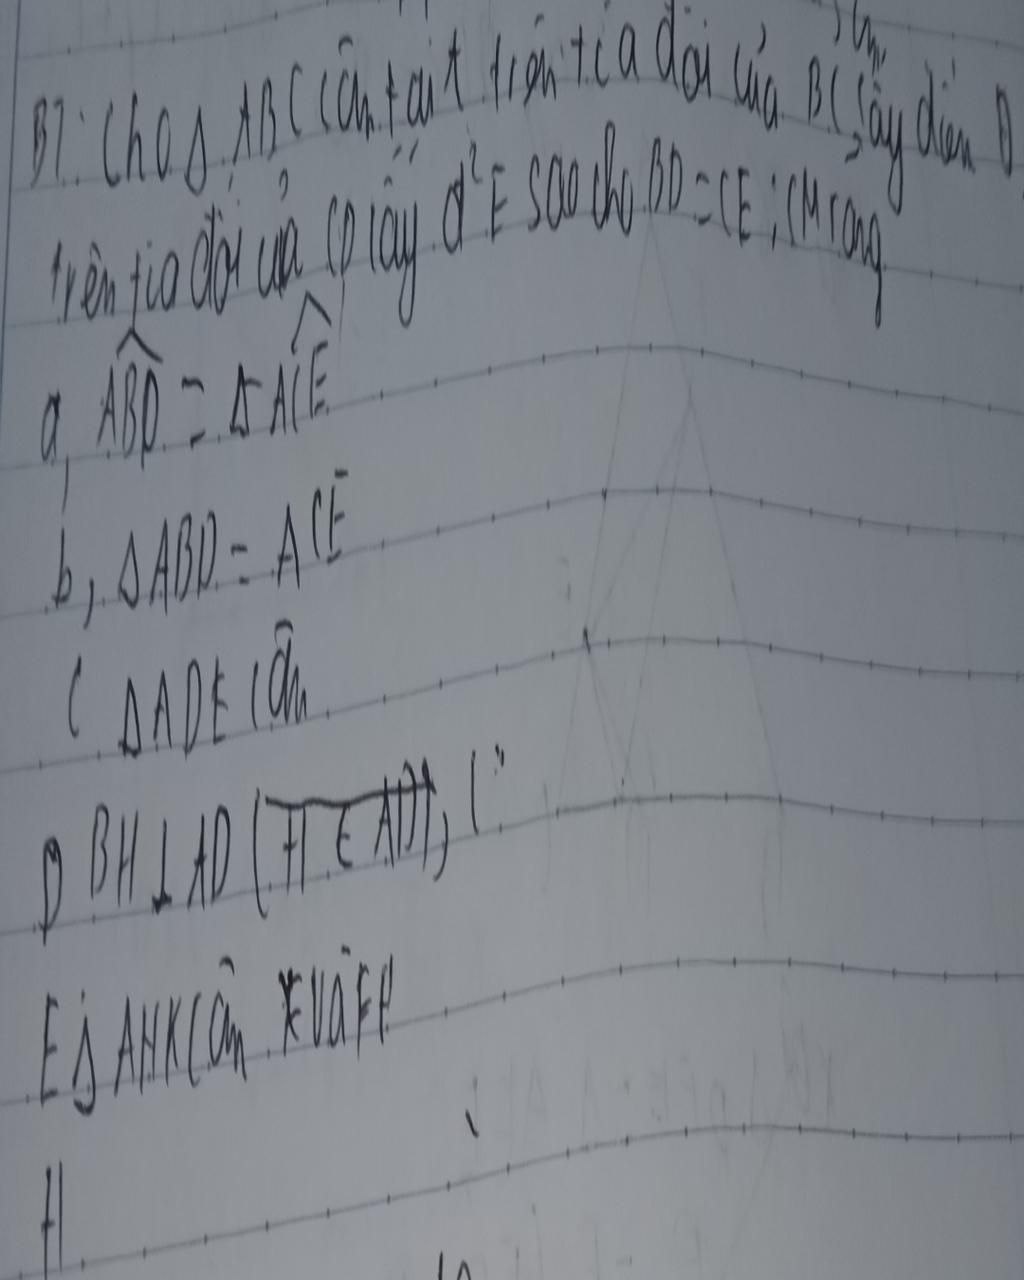 B7: Cho Δ ABC cân tại A trên tia đối của BC lấy điểm D
trên tia đối của CD lấy đ² E sao cho BD = CE; CM rằng
a, ABD = Δ ACE
b, ΔABD = ACE
C ΔADE cân
D BH ⊥ AD (H ∈ AD), (
E, Δ AHK Cân
H